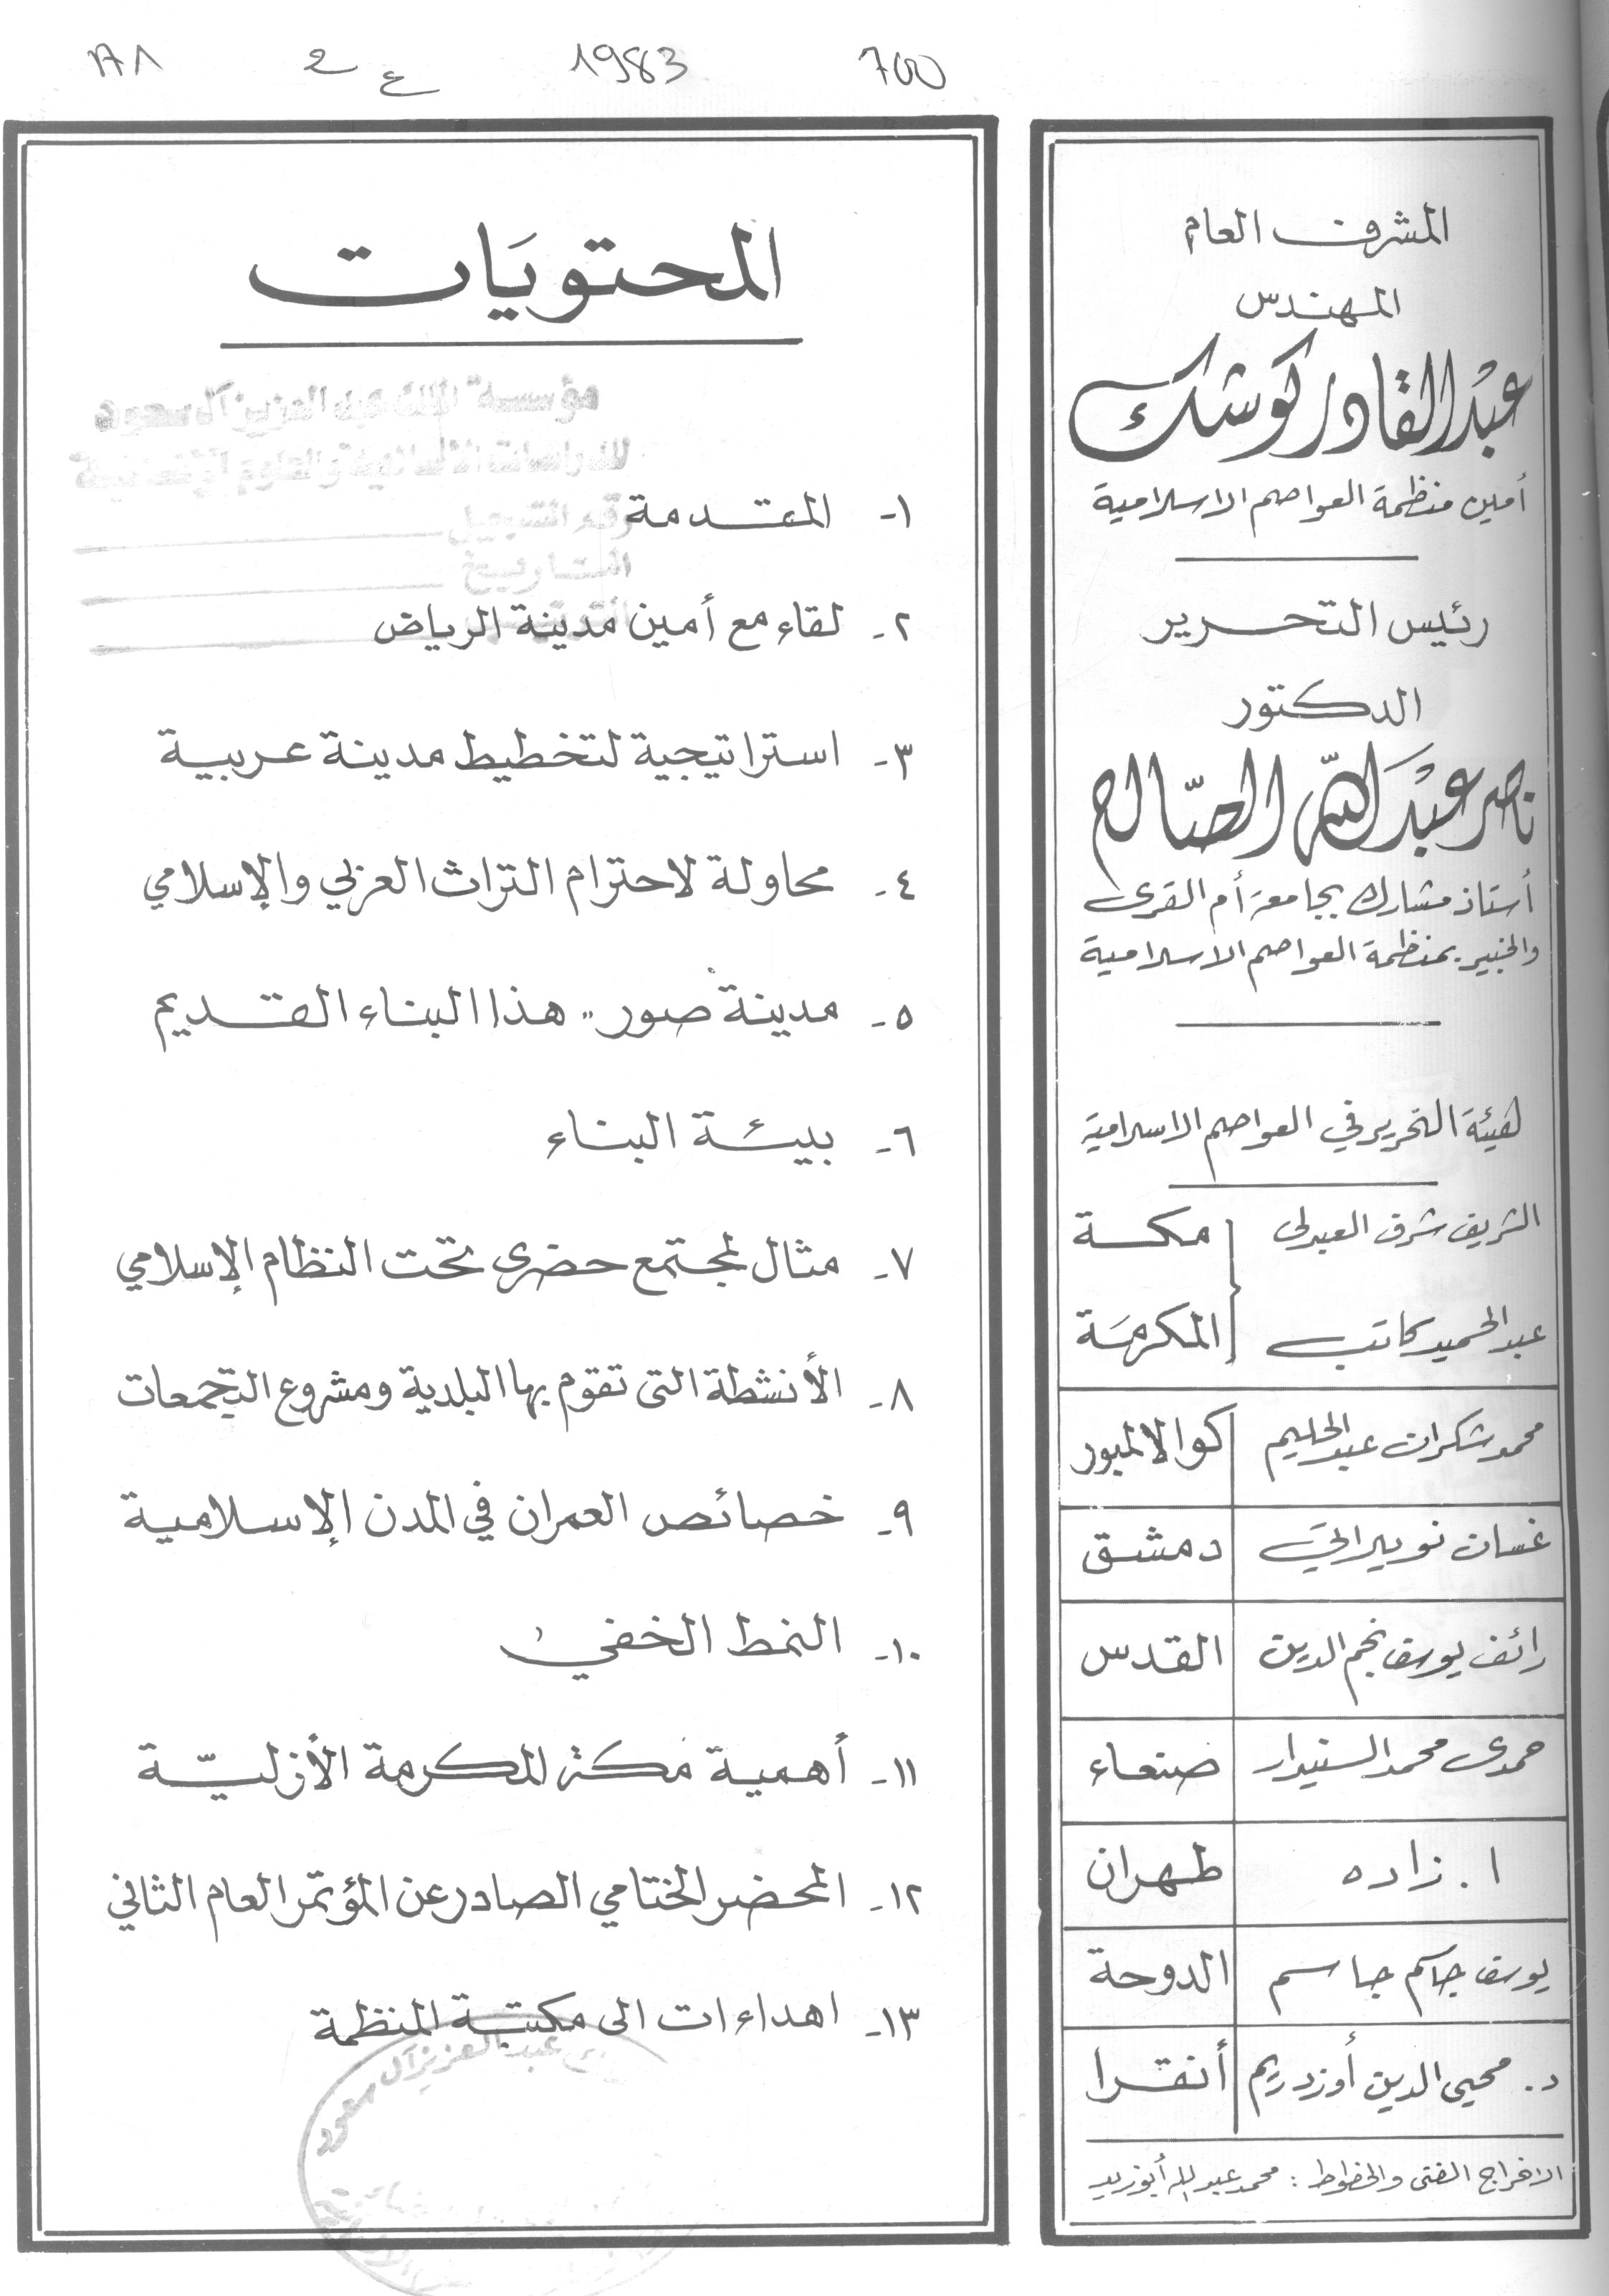 700 1983 ع 2 ١٦٨١
المشرف العام
المهندس
عبْد القادر كوشك
أمين منظمة العواصم الاسلامية
رئيس التحرير
الدكتور
ناصر عبْدَ اللّه الصّالح
أستاذ مشارك بجامعة أم القرى
والخبير بمنظمة العواصم الاسلامية
هيئة التحرير في العواصم الاسلامية
الشريف شرف العبدلى مكة
عبد الحميد كاتب المكرمَة
محمد شكران عبد الحليم كوالالمبور
غسان نويلاتي دمشق
رائف يوسف نجم الدين القدس
حمدى محمد السنيدار صنعاء
ا. زاده طهران
يوسف جاسم جاسم الدوحة
د. محيي الدين أوزدريم أنقرا
الاخراج الفنى والخطوط : محمد عبد الله أبوزيد
المحتويَات
مؤسسة الملك عبد العزيز آل سعود
للدراسات الاسلامية والعلوم الإنسانية
رقم التسجيل
التاريخ
١- المقدمة
٢- لقاء مع أمين مدينة الرياض
٣- استراتيجية لتخطيط مدينة عربية
٤- محاولة لاحترام التراث العربي والإسلامي
٥- مدينة صور .. هذا البناء القديم
٦- بيئة البناء
٧- مثال لمجتمع حضرى تحت النظام الإسلامي
٨- الأنشطة التى تقوم بها البلدية ومشروع التجمعات
٩- خصائص العمران في المدن الإسلامية
١٠- النمط الخفي
١١- أهمية مكة المكرمة الأزليّة
١٢- المحضر الختامي الصادر عن المؤتمر العام الثاني
١٣- اهداءات الى مكتبة المنظمة
عبد العزيز آل سعود